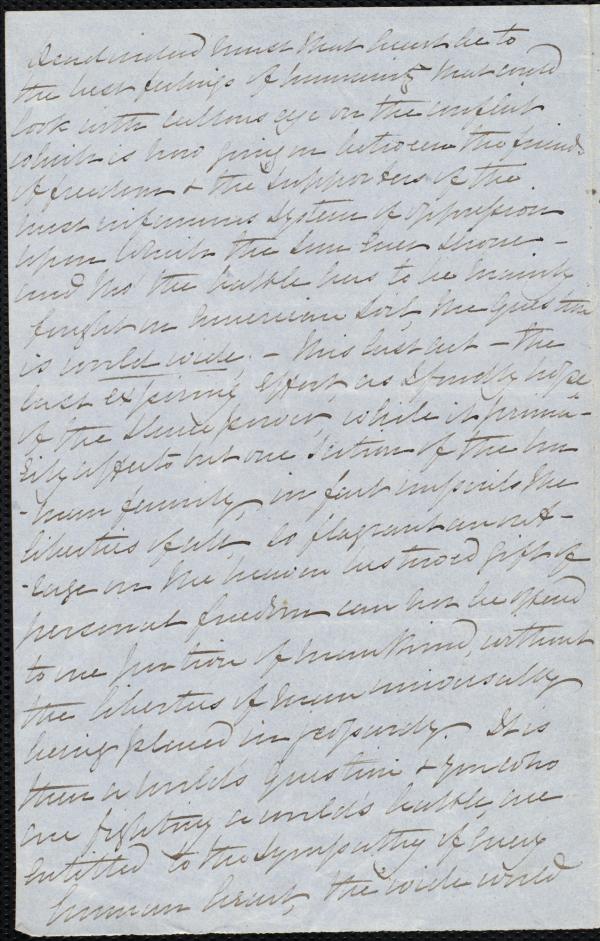 Dead indeed must that heart be to
the best feelings of humanity that could
look with callous eye on the conflict
which is now going on between the friends
of freedom & the supporters of the
most infamous system of oppression
upon which the sun ever shone -
and tho' the battle has to be mainly
fought on American soil, the question
is world wide. - This last act - the
last expiring effort, as I fondly hope
of the Slave power, while it prima-
rily affects but one section of the hu
-man family, in fact imperils the
liberties of all, so flagrant an out-
-rage on the heaven bestowed gift of
personal freedom can not be offered
to one portion of mankind, without
the liberties of man universally
being placed in jeopardy. It is
then a world's question & you who
are fighting a world's battle, are
entitled to the sympathy of every
human heart, the wide world